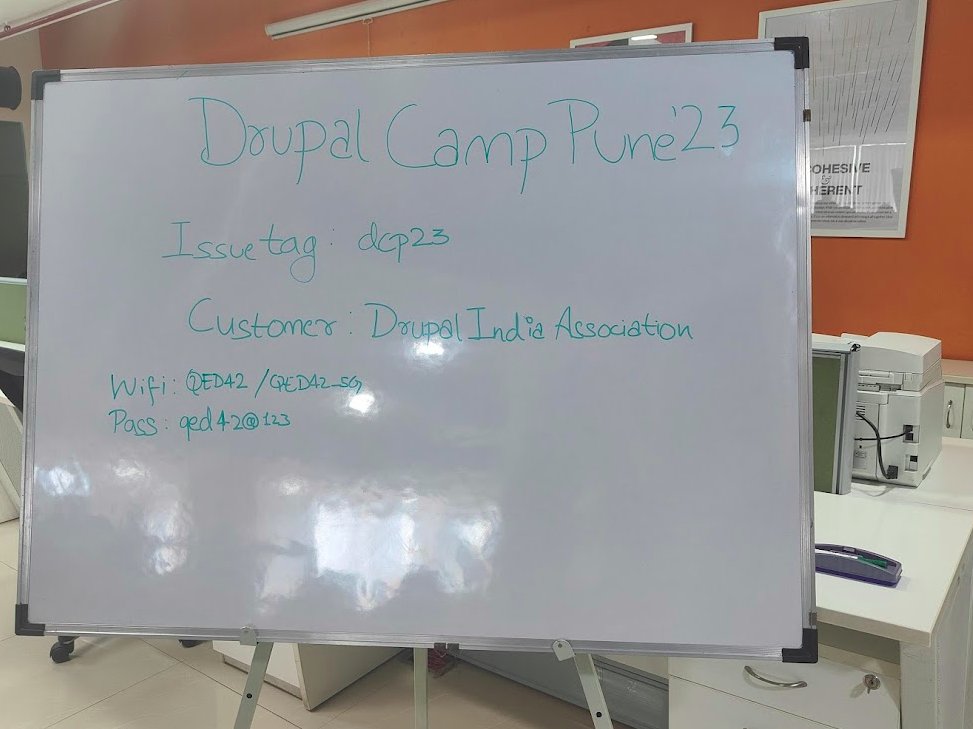 Drupal Camp Pune'23
Issue tag: dcp23
Customer: Drupal India Association
Wifi: QED42 / QED42_5G
Pass: qed42@123
OHESIVE
&
HERENT